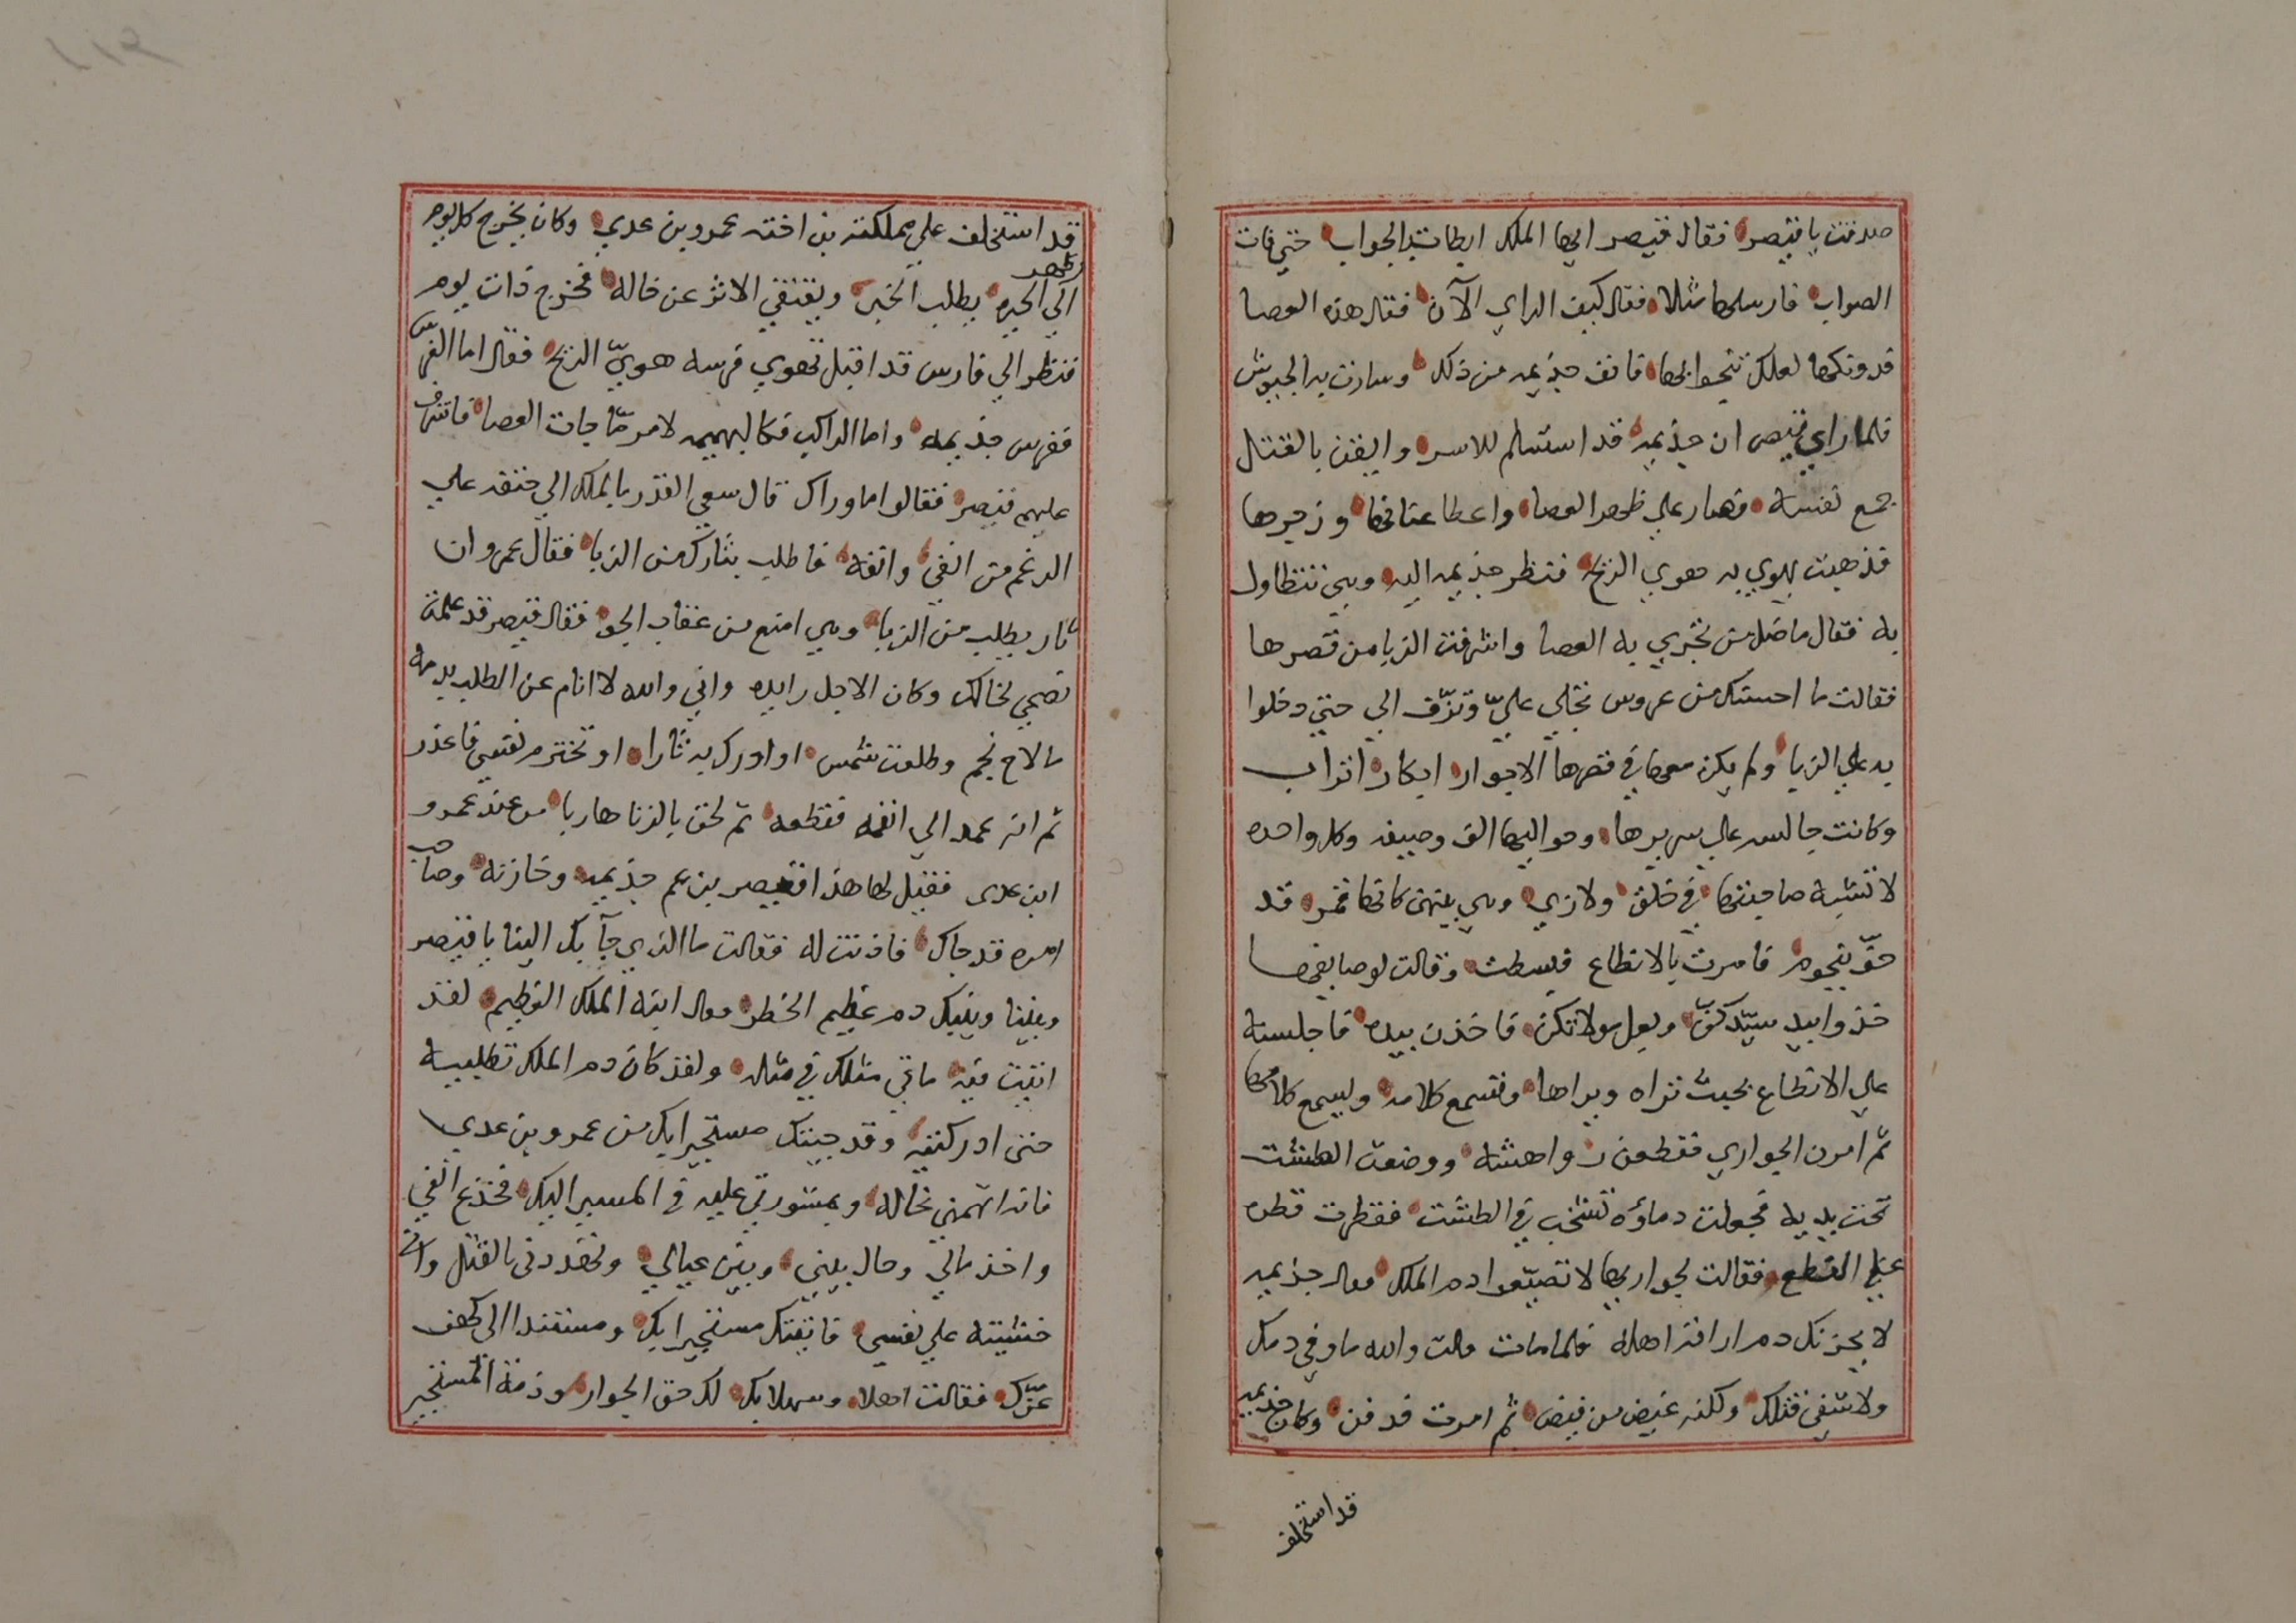 صدقت يا قيصر فقال قيصر ايها الملك ابطات بالجواب حتي فات
الصواب فارسلها مثلا فقال كيف الراي الآن فقال هذه العصا
فدونكها لعلك تنجوا بها فانف جذيمه من ذلك وسارت به الجيوش
فلما راي قيصر ان جذيمه قد استسلم للاسر وايقن بالقتل
جمع نفسه فصار علي ظهر العصا واعطا عنانها وزجرها
فذهبت تهوي به هوي الريح فنظر جذيمه اليه وهي تتطاول
به فقال ما ضل من تجري به العصا واشرفت الزبا من قصرها
فقالت ما احسنك من عروس تجلي عليّ وتزف الي حتي دخلوا
به علي الزبا ولم يكن معها في قصرها الا جوار ابكار اتراب
وكانت جالسه علي سريرها وحواليها الف وصيفه وكل واحده
لا تشبه صاحبتها في خلق ولا زي وهي بينهن كانها قمر قد
حفّ بنجوم فامرت بالانطاع فبسطت وقالت لوصايفها
خذوا بيد سيّدكنّ وبعل مولاتكن فاخذن بيده فاجلسنه
علي الانطاع بحيث تراه ويراها وتسمع كلامه ويسمع كلامها
ثم امرن الجواري فقطعن رواهشه ووضعت الطشت
تحت يديه فجعلت دماؤه تشخب في الطشت فقطرت قطره
علي النطع فقالت لجواريها لا تضيّعوا دم الملك فقال جذيمه
لا يحزنك دم اراقه اهله فلما مات قالت والله ما وفي دمك
ولا شفي قتلك ولكنه غيض من فيض ثم امرت فدفن وكان جذيمه
قد استخلف
قد استخلف علي مملكته بن اخته عمرو بن عدي وكان يخرج كل يوم
الي ظهر الحيره يطلب الخبر ويقتفي الاثر عن خاله فخرج ذات يوم
فنظر الي فارس قد اقبل تهوي فرسه هويّ الريح فقال اما الفرس
ففرس جذيمه واما الراكب فكالبهيمه لامر مّا جات العصا فاشرف
عليهم قيصر فقالوا ما وراك قال سعي القدر بالملك الي حتفه علي
الرغم من انفي وانفه فاطلب بثارك من الزبا فقال عمرو ان
ثار يطلب من الزبا وهي امنع من عقاب الجو فقال قيصر قد علمت
نصحي لخالك وكان الاجل رايده واني والله لا انام عن الطلب بدمه
ما لاح نجم وطلعت شمس او ادرك به ثارا او تخترم نفسي فاعذر
ثم انه عمد الي انفه فقطعه ثم لحق بالزبا هاربا من عند عمرو
ابن عدى فقيل لها هذا قيصر بن عم جذيمه وخازنه وصاحب
امره قد جاك فاذنت له فقالت ما الذي جآ بك الينا يا قيصر
وبيننا وبينك دم عظيم الخطر فقال ابنة الملك العظيم لقد
اتيت فيه ماتي مثلك في مثله ولقد كان دم الملك تطلبيه
حتى ادركتيه وقد جيتك مستجيرا بك من عمرو بن عدي
فانه اتهمني بخاله وبمشورتي عليه في المسير اليك فجذع انفي
واخذ مالي وحال بيني وبين عيالي وتهددني بالقتل واني
خشيته علي نفسي فاتيتك مستجيرا بك ومستندا الي كهف
عزّك فقالت اهلا وسهلا بك لك حق الجوار وذمة المستجير